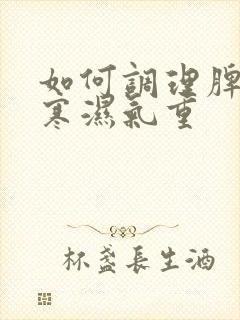 如何調理脾
寒濕氣重
杯盞長生酒